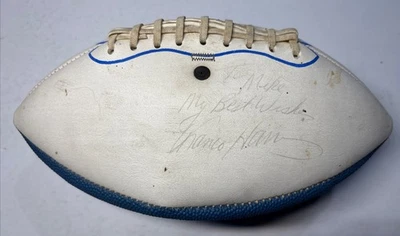 To Mike
My Best Wishes
Franco Harris